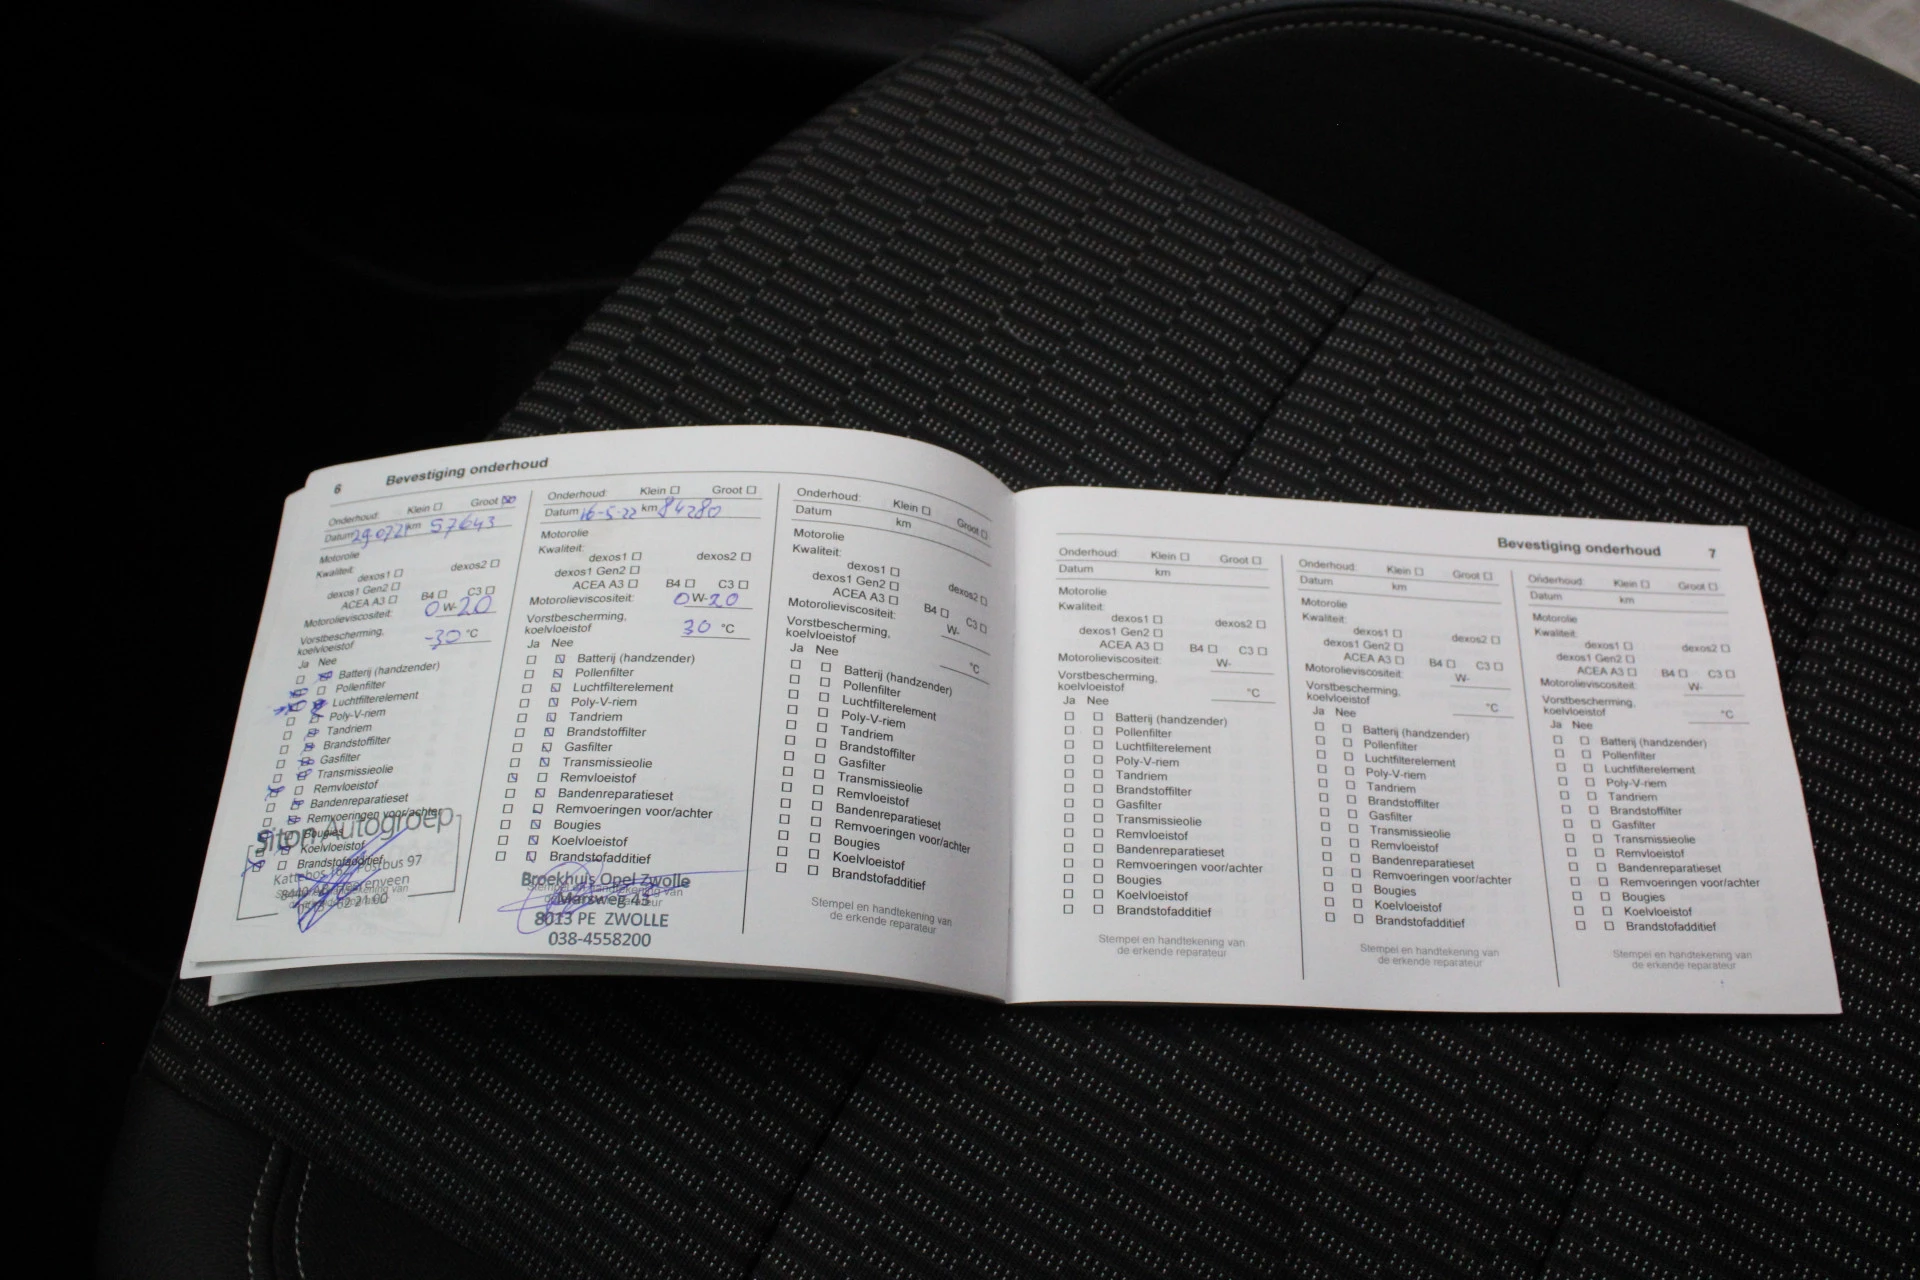 6 Bevestiging onderhoud
Onderhoud: Klein Groot
Datum 29 07 21 km 57643
Motorolie
Kwaliteit:
dexos1 dexos2
dexos1 Gen2
ACEA A3 B4 C3
Motorolieviscositeit: 0 W-20
Vorstbescherming,
koelvloeistof -30 °C
Ja Nee
Batterij (handzender)
Pollenfilter
Luchtfilterelement
Poly-V-riem
Tandriem
Brandstoffilter
Gasfilter
Transmissieolie
Remvloeistof
Bandenreparatieset
Remvoeringen voor/achter
Bougies
Koelvloeistof
Brandstofadditief
Siton Autogroep
Kattebos 162, Postbus 97
Heerenveen
Onderhoud: Klein Groot
Datum 16-5-22 km 84280
Motorolie
Kwaliteit:
dexos1 dexos2
dexos1 Gen2
ACEA A3 B4 C3
Motorolieviscositeit: 0 W-20
Vorstbescherming,
koelvloeistof 30 °C
Ja Nee
Batterij (handzender)
Pollenfilter
Luchtfilterelement
Poly-V-riem
Tandriem
Brandstoffilter
Gasfilter
Transmissieolie
Remvloeistof
Bandenreparatieset
Remvoeringen voor/achter
Bougies
Koelvloeistof
Brandstofadditief
Broekhuis Opel Zwolle
Marsweg 43
8013 PE ZWOLLE
038-4558200
Onderhoud: Klein Groot
Datum km
Motorolie
Kwaliteit:
dexos1 dexos2
dexos1 Gen2
ACEA A3 B4 C3
Motorolieviscositeit: W-
Vorstbescherming,
koelvloeistof °C
Ja Nee
Batterij (handzender)
Pollenfilter
Luchtfilterelement
Poly-V-riem
Tandriem
Brandstoffilter
Gasfilter
Transmissieolie
Remvloeistof
Bandenreparatieset
Remvoeringen voor/achter
Bougies
Koelvloeistof
Brandstofadditief
Stempel en handtekening van
de erkende reparateur
Bevestiging onderhoud 7
Onderhoud: Klein Groot
Datum km
Motorolie
Kwaliteit:
dexos1 dexos2
dexos1 Gen2
ACEA A3 B4 C3
Motorolieviscositeit: W-
Vorstbescherming,
koelvloeistof °C
Ja Nee
Batterij (handzender)
Pollenfilter
Luchtfilterelement
Poly-V-riem
Tandriem
Brandstoffilter
Gasfilter
Transmissieolie
Remvloeistof
Bandenreparatieset
Remvoeringen voor/achter
Bougies
Koelvloeistof
Brandstofadditief
Stempel en handtekening van
de erkende reparateur
Onderhoud: Klein Groot
Datum km
Motorolie
Kwaliteit:
dexos1 dexos2
dexos1 Gen2
ACEA A3 B4 C3
Motorolieviscositeit: W-
Vorstbescherming,
koelvloeistof °C
Ja Nee
Batterij (handzender)
Pollenfilter
Luchtfilterelement
Poly-V-riem
Tandriem
Brandstoffilter
Gasfilter
Transmissieolie
Remvloeistof
Bandenreparatieset
Remvoeringen voor/achter
Bougies
Koelvloeistof
Brandstofadditief
Stempel en handtekening van
de erkende reparateur
Onderhoud: Klein Groot
Datum km
Motorolie
Kwaliteit:
dexos1 dexos2
dexos1 Gen2
ACEA A3 B4 C3
Motorolieviscositeit: W-
Vorstbescherming,
koelvloeistof °C
Ja Nee
Batterij (handzender)
Pollenfilter
Luchtfilterelement
Poly-V-riem
Tandriem
Brandstoffilter
Gasfilter
Transmissieolie
Remvloeistof
Bandenreparatieset
Remvoeringen voor/achter
Bougies
Koelvloeistof
Brandstofadditief
Stempel en handtekening van
de erkende reparateur